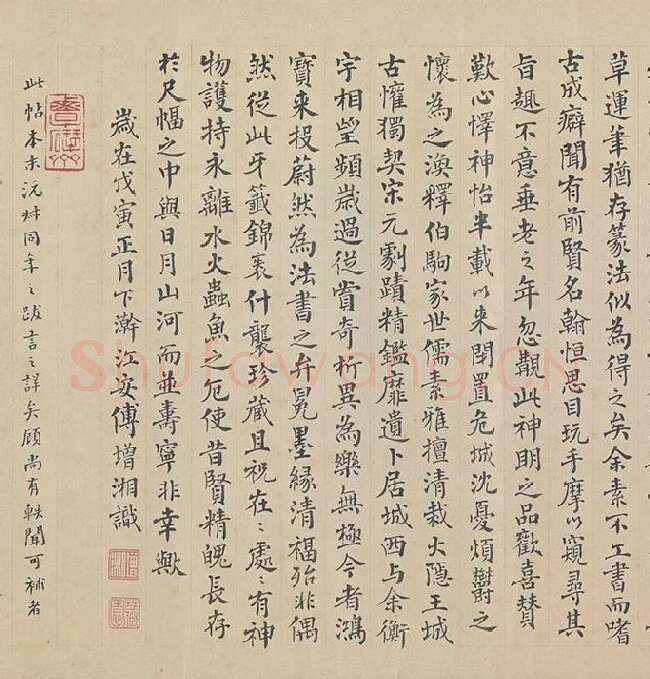 草運筆猶存篆法似為得之矣余素不工書而嗜
古成癖聞有前賢名翰恒思目玩手摩以窺尋其
旨趣不意垂老之年忽覩此神明之品歡喜贊
歎心懌神怡半載以來閉置危城沈憂煩鬱之
懷為之渙釋伯駒家世儒素雅擅清裁大隱王城
古懽獨契宋元劇蹟精鑑靡遺卜居城西与余衡
宇相望頻歲過從賞奇析異為樂無極今者鴻
寶來投蔚然為法書之弁冕墨緣清福殆非偶
然從此牙籤錦裹什襲珍藏且祝在〻處〻有神
物護持永離水火蟲魚之厄使昔賢精魄長存
於尺幅之中與日月山河而並壽寧非幸歟
歲在戊寅正月下澣江安傅增湘識
此帖本末沅叔同年之跋言之詳矣顧尚有軼聞可補者
Shufawang.CN